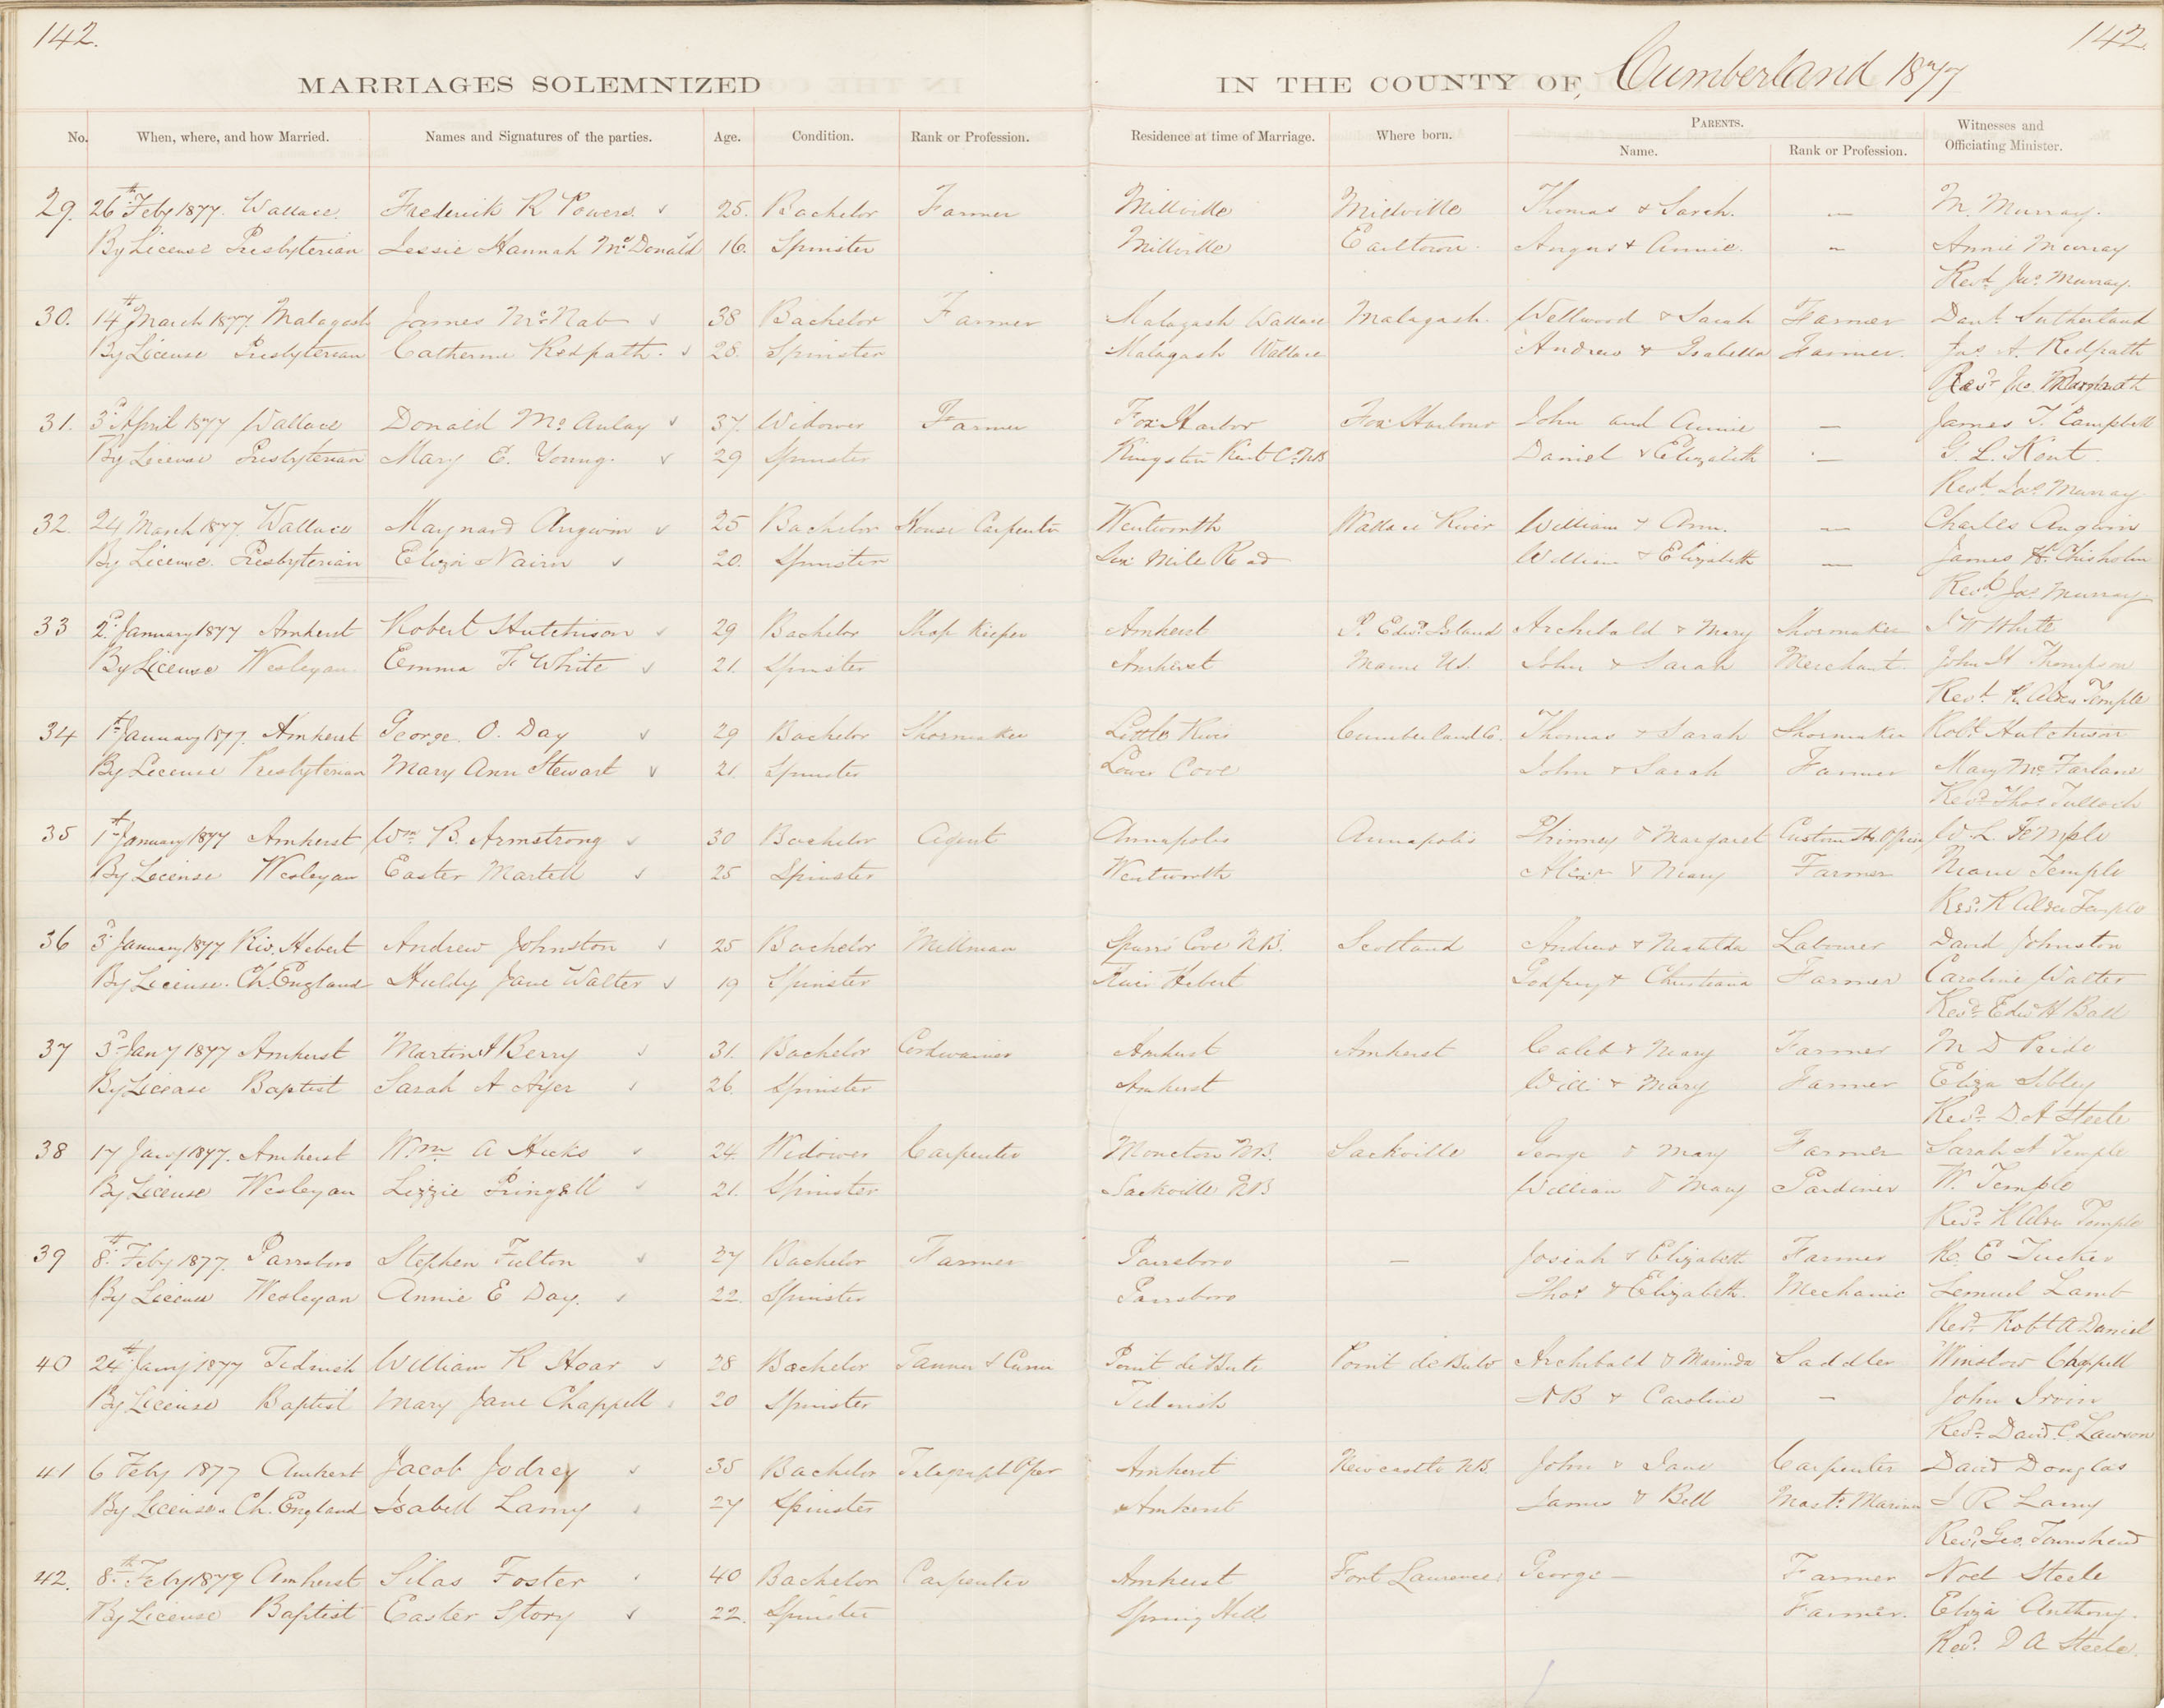 142. 142.
MARRIAGES SOLEMNIZED IN THE COUNTY OF, Cumberland 1877
No. When, where, and how Married. Names and Signatures of the parties. Age. Condition. Rank or Profession. Residence at time of Marriage. Where born. PARENTS. Witnesses and
Name. Rank or Profession. Officiating Minister.
29. 26th Feby 1877. Wallace. Frederick R Powers. 25. Bachelor Farmer Millville Millville Thomas & Sarah. — M. Murray.
By License Presbyterian Jessie Hannah McDonald 16. Spinster Millville Earltown. Angus & Annie. — Annie Murray
Revd Jas. Murray.
30. 14th March 1877. Malagash James McNab 38 Bachelor Farmer Malagash Wallace Malagash. Wellwood & Sarah Farmer Danl. Sutherland
By License Presbyterian Catherine Redpath. 28. Spinster Malagash Wallace Andrew & Isabella Farmer. Jas. A. Redpath
31. 3d April 1877 Wallace Donald McAulay 37. Widower Farmer Fox Harbor Fox Harbour John and Annie — James T. Campbell
By License Presbyterian Mary E. Young. 29 Spinster Kingston Kent Co. NB Daniel & Elizabeth — G. L. Kent.
Revd Jas. Murray
32. 24 March 1877. Wallace Maynard Angwin 25 Bachelor House Carpenter Wentworth Wallace River William & Ann. — Charles Angwin
By License. Presbyterian Eliza Nairn 20. Spinster Six Mile Road William & Elizabeth — James H. Chisholm
Revd. Jas. Murray
33 2d. January 1877 Amherst Robert Hutchison 29 Bachelor Shop Keeper Amherst P. Edwd. Island Archibald & Mary Shoemaker J W White
By License Wesleyan Emma F. White 21. Spinster Amherst Maine US. John & Sarah Merchant. John H Thompson
Revd. R. Alder Temple
34 1st January 1877. Amherst George. O. Day 29 Bachelor Shoemaker Little River Cumberland Co. Thomas & Sarah Shoemaker Robt Hutchison
By License Presbyterian Mary Ann Stewart 21. Spinster Lower Cove John & Sarah Farmer Mary McFarlane
Revd. Thos Tulloch
35 1st January 1877 Amherst Wm. B. Armstrong 30 Bachelor Agent Annapolis Annapolis Phinney & Margaret Custom Ho. Officer W. L. Temple
By License Wesleyan Easter Martell 25 Spinster Wentworth Alexr & Mary Farmer Temple
Revd. R Alder Temple
36 3d. January 1877 Riv. Hebert Andrew Johnston 25 Bachelor Millman Cove N.B. Scotland Andrew & Matilda Labourer David Johnston
By License. Ch. England Huldy Jane Walter 19 Spinster River Hebert Godfrey & Christiana Farmer Caroline Walter
Revd. Edw H Ball
37 3d Jany 1877 Amherst Martin A Berry 31. Bachelor Cordwainer Amherst Amherst Caleb & Mary Farmer M D Pride
By License Baptist Sarah A Ayer 26. Spinster Amherst Willi & Mary Farmer Eliza Sibley
Revd. D A Steele
38 17 Jany 1877. Amherst Wm A Hicks 24. Widower Carpenter Moncton N.B. Sackville George & Mary Farmer Sarah A Temple
By License Wesleyan Lizzie Pringell 21. Spinster Sackville NB William & Mary Gardiner W. Temple
Revd. R Alder Temple
39 8th. Feby 1877. Parrsboro Stephen Fulton 27 Bachelor Farmer Parrsboro — Josiah & Elizabeth Farmer R. E Tucker
By License Wesleyan Annie E Day. 22. Spinster Parrsboro Thos & Elizabeth. Mechanic Lemuel Lamb
Revd. Robt A Daniel
40 24th Jany 1877 Tidnish William R Hoar 28 Bachelor Tanner & Currer Point de Bute Point de Bute Archibald & Marinda Saddler Winslow Chappell
By License Baptist Mary Jane Chappell 20 Spinster Tidnish A B & Caroline — John Irvin
Revd. David. C. Lawson
41 6 Feby 1877 Amherst Jacob Jodrey 35 Bachelor Telegraph Oper Amherst Newcastle N.B. John & Jane Carpenter David Douglas
By License Ch. England Isabell Lamy 27 Spinster Amherst James & Bell Mastr. Mariner J R Lamy
Revd. Geo. Townshend
42. 8th Feby 1877 Amherst Silas Foster 40 Bachelor Carpenter Amherst Fort Laurence George — Farmer Noel Steele
By License Baptist Easter Story 22. Spinster Spring Hill Farmer. Eliza Anthony.
Revd. D A Steele.